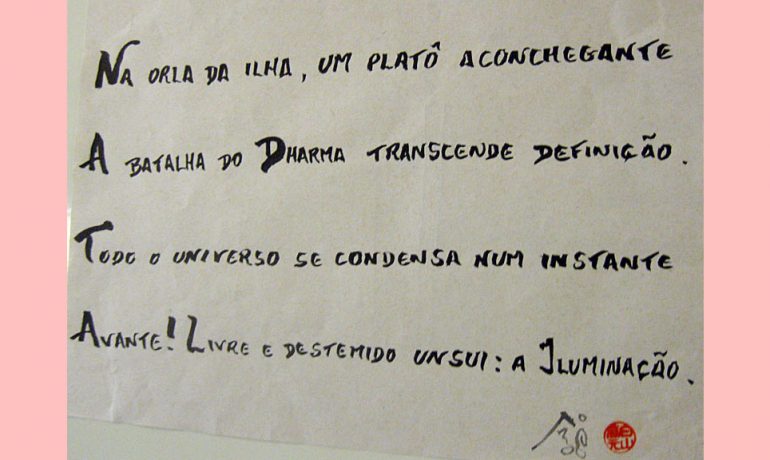 Na orla da ilha, um platô aconchegante
A batalha do Dharma transcende definição.
Todo o universo se condensa num instante
Avante! Livre e destemido unsui: a Iluminação.